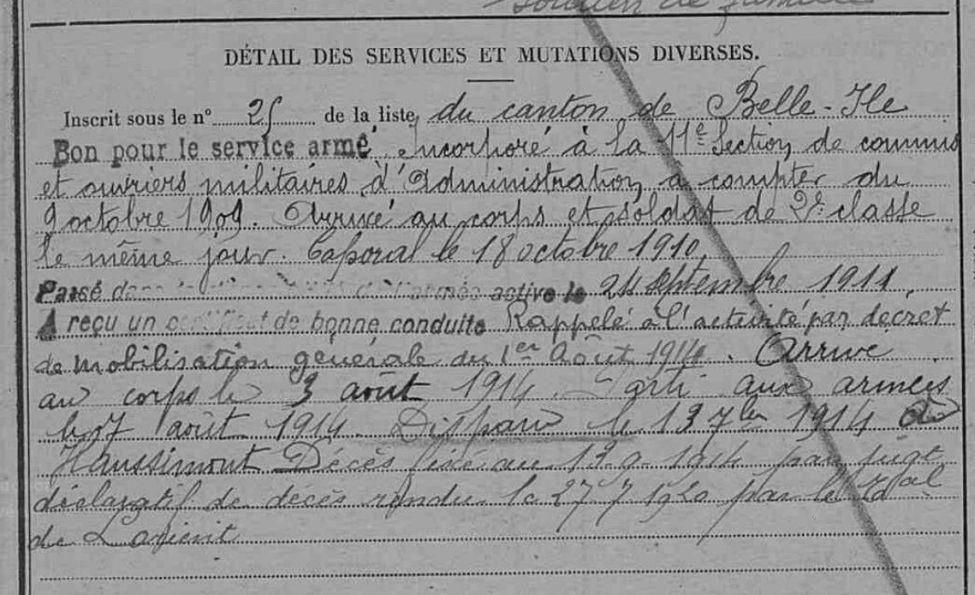 soutien de famille
DÉTAIL DES SERVICES ET MUTATIONS DIVERSES.
Inscrit sous le n° 25 de la liste du canton de Belle-Ile
Bon pour le service armé. Incorporé à la 11e Section de commis
et ouvriers militaires d'Administration à compter du
9 octobre 1909. Arrivé au corps et soldat de 2e classe
le même jour. Caporal le 18 octobre 1910.
Passé dans l'armée active le 24 septembre 1911.
A reçu un certificat de bonne conduite Rappelé à l'activité par décret
de mobilisation générale du 1er Août 1914. Arrivé
au corps le 3 août 1914. Parti aux armées
le 7 août 1914. Disparu le 13 7bre 1914 à
Haussimont Décès fixé au 13.9.1914 par jugt
déclaratif de décès rendu le 27 7 1920 par le tbal
de Lorient